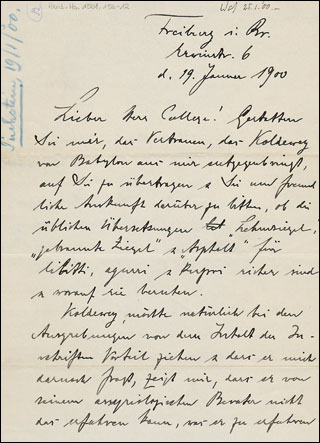 Freiburg i. Br.
Erwinstr. 6
d. 19. Januar 1900
Puchstein, 19/1/00.
Lieber Herr College! Gestatten
Sie mir, das Vertrauen, das Koldewey
von Babylon aus mir entgegenbringt,
auf Sie zu übertragen u Sie um freund
liche Auskunft darüber zu bitten, ob die
üblichen Übersetzungen „Lehmziegel,
gebrannte Ziegel“ u „Asphalt“ für
libitti, agurri u kupri sicher sind
u worauf sie beruhen.
Koldewey möchte natürlich bei den
Ausgrabungen von dem Inhalt der In-
schriften Vorteil ziehen u dass er mich
darnach fragt, zeigt mir, dass er von
seinem assyriologischen Berater nicht
das erfahren kann, was er zu erfahren